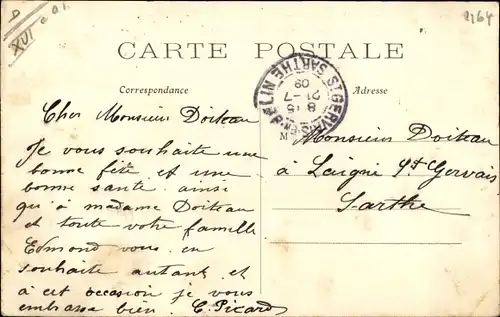 2164
XVI
CARTE POSTALE
Correspondance
Adresse
ST GERVAIS-EN-BELIN
SARTHE
8 15
21-7
09
Cher Monsieur Doiteau
Je vous souhaite une
bonne fête et une
bonne santé ainsi
qu'à madame Doiteau
et toute votre famille
Edmond vous en
souhaite autant et
à cet occasion je vous
embrasse bien C. Picard
Monsieur Doiteau
à Laigné St Gervais
Sarthe